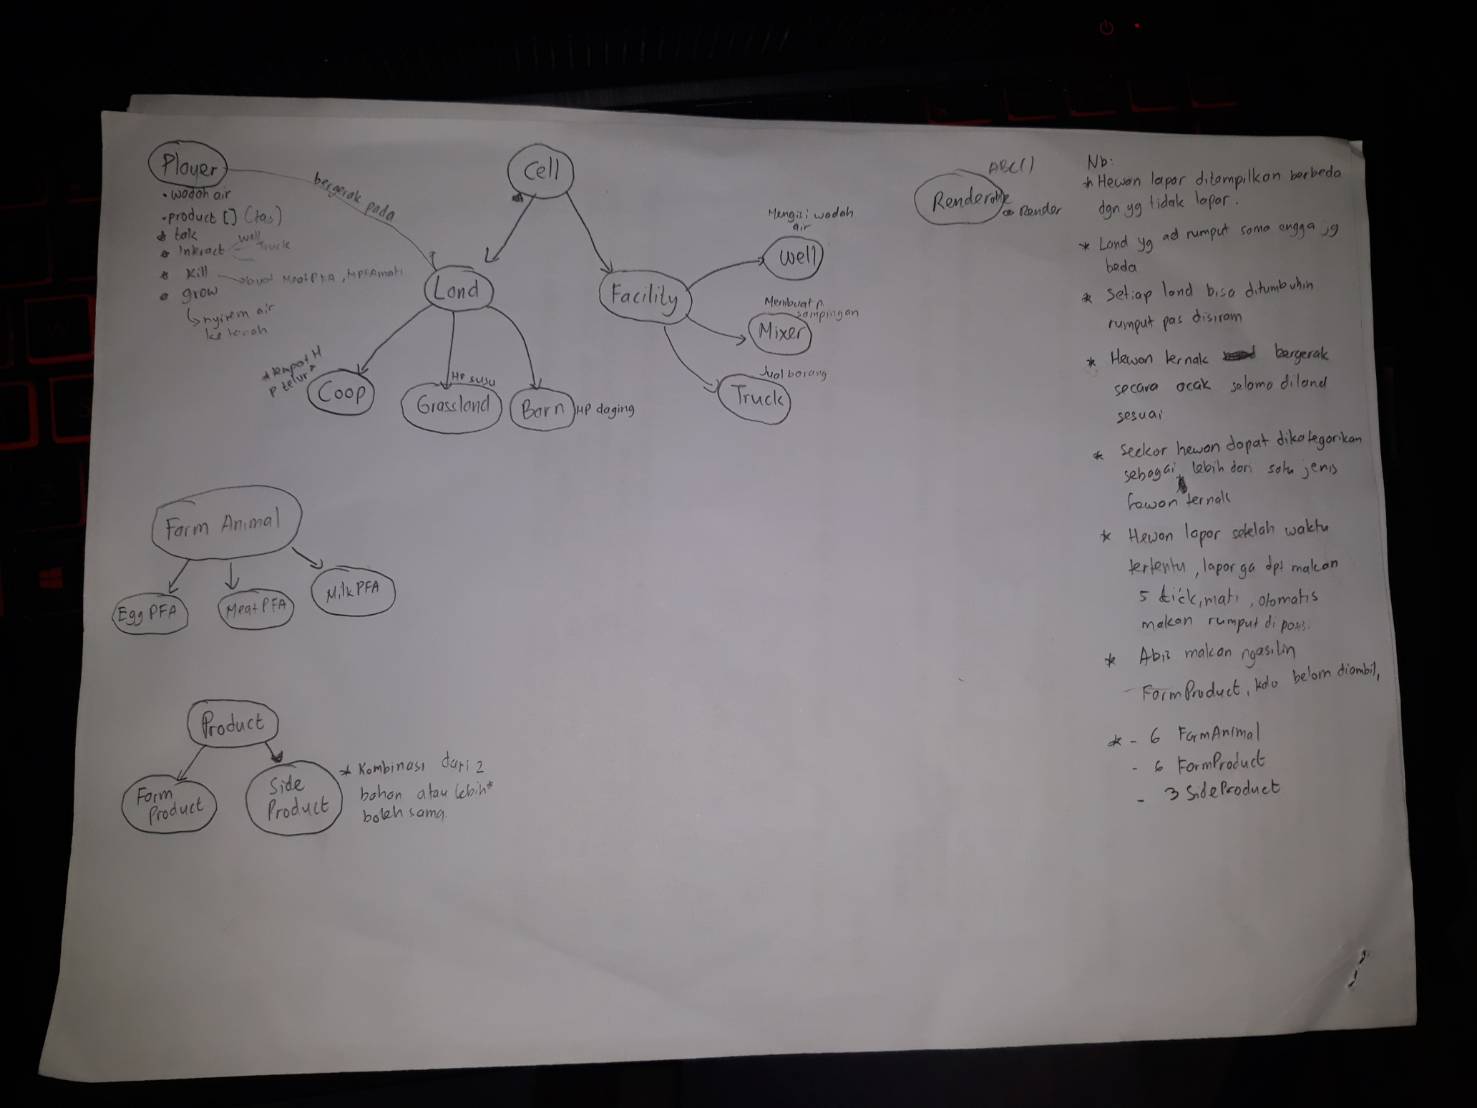 Player
• wadah air
• product [] (tas)
* talk
* Interact well
Truck
* kill → buat MeatPFA, MPFA mati
* grow
↳ nyirem air
ke tanah
bergerak pada
Cell
Land
Facility
* tempat H
P telur *
Coop
HP susu
Grassland
Barn
HP daging
Mengisi wadah
air
Well
Membuat p.
sampingan
Mixer
Jual barang
Truck
ABC()
Renderable
Render
Farm Animal
Egg PFA
Meat PFA
Milk PFA
Product
Farm
Product
Side
Product
* Kombinasi dari 2
bahan atau lebih *
boleh sama
Nb:
* Hewan lapar ditampilkan berbeda
dgn yg tidak lapar.
* Land yg ad rumput sama engga jg
beda
* Setiap land bisa ditumbuhin
rumput pas disiram
* Hewan ternak bergerak
secara acak selama diland
sesuai
* Seekor hewan dapat dikategorikan
sebagai lebih dari satu jenis
hewan ternak
* Hewan lapar setelah waktu
tertentu, lapar ga dpt makan
5 tick, mati, otomatis
makan rumput di posisi
* Abis makan ngasilin
FarmProduct, kdu belom diambil,
* - 6 FarmAnimal
- 6 FarmProduct
- 3 SideProduct